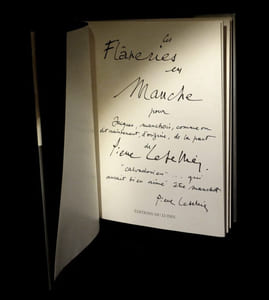 les
Flâneries
en
Manche
pour
Jacques, manchois, comme on
dit maintenant, d'origine, de la part
de
Pierre
"calvadosien"... qui
aurait bien aimé être manchot
Pierre
ÉDITIONS DU